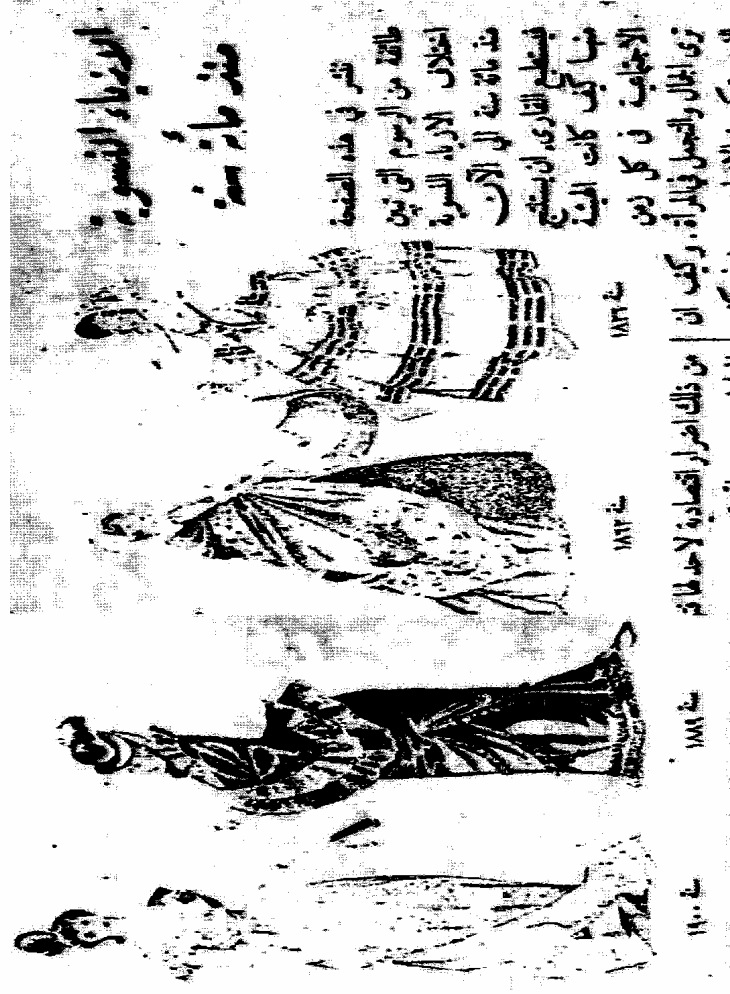 الازياء النسوية
منذ مائة سنة
ننشر في هذه الصفحة
طائفة من الرسوم التي تبين
اختلاف الازياء النسوية
منذ مائة سنة الى الآن
فيستطيع القارىء ان يستنتج
منها كيف كانت الهيئة
الاجتماعية في كل زمن
ترى الجمال والتجمل في المرأة . وكيف ان
سنة
سنة
سنة ١٨٨٩
سنة ١٩٠٠
من ذلك اضرار اقتصادية لا حد لها